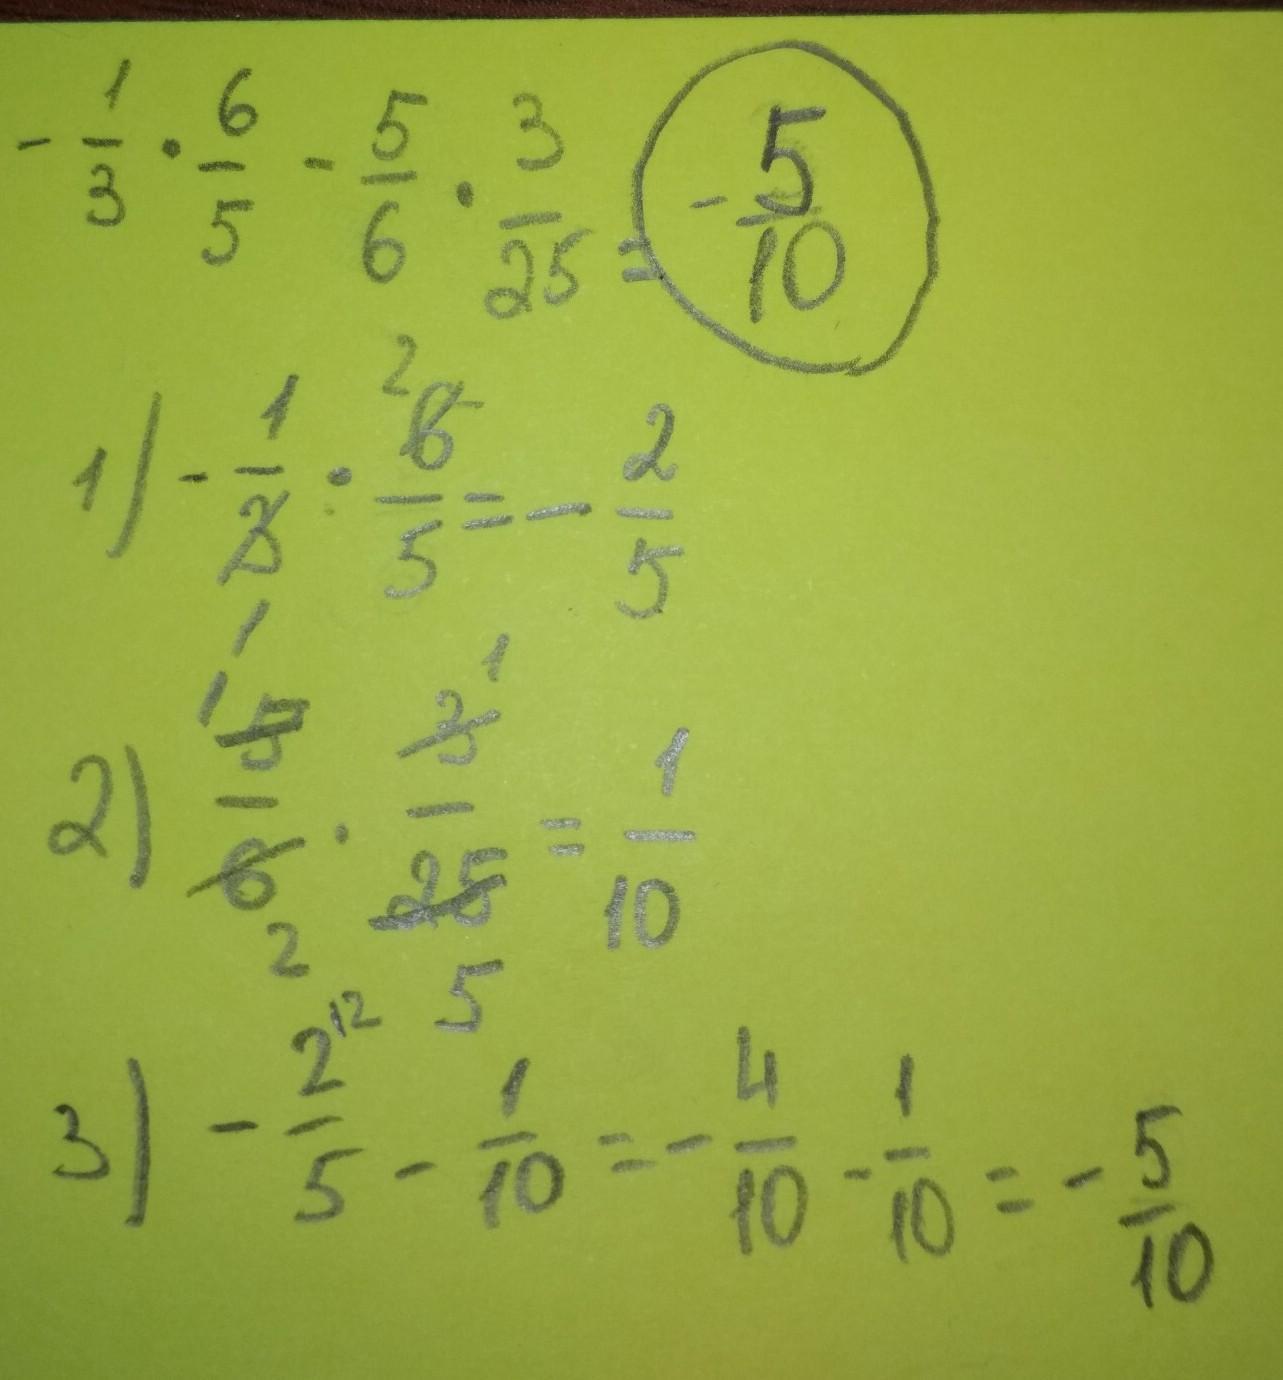 - 1/3 · 6/5 - 5/6 · 3/25 = - 5/10
1) - 1/3 1 · 2 6/5 = - 2/5
2) 1 5/6 2 · 3 1/25 5 = 1/10
3) - 2 12/5 - 1/10 = - 4/10 - 1/10 = - 5/10